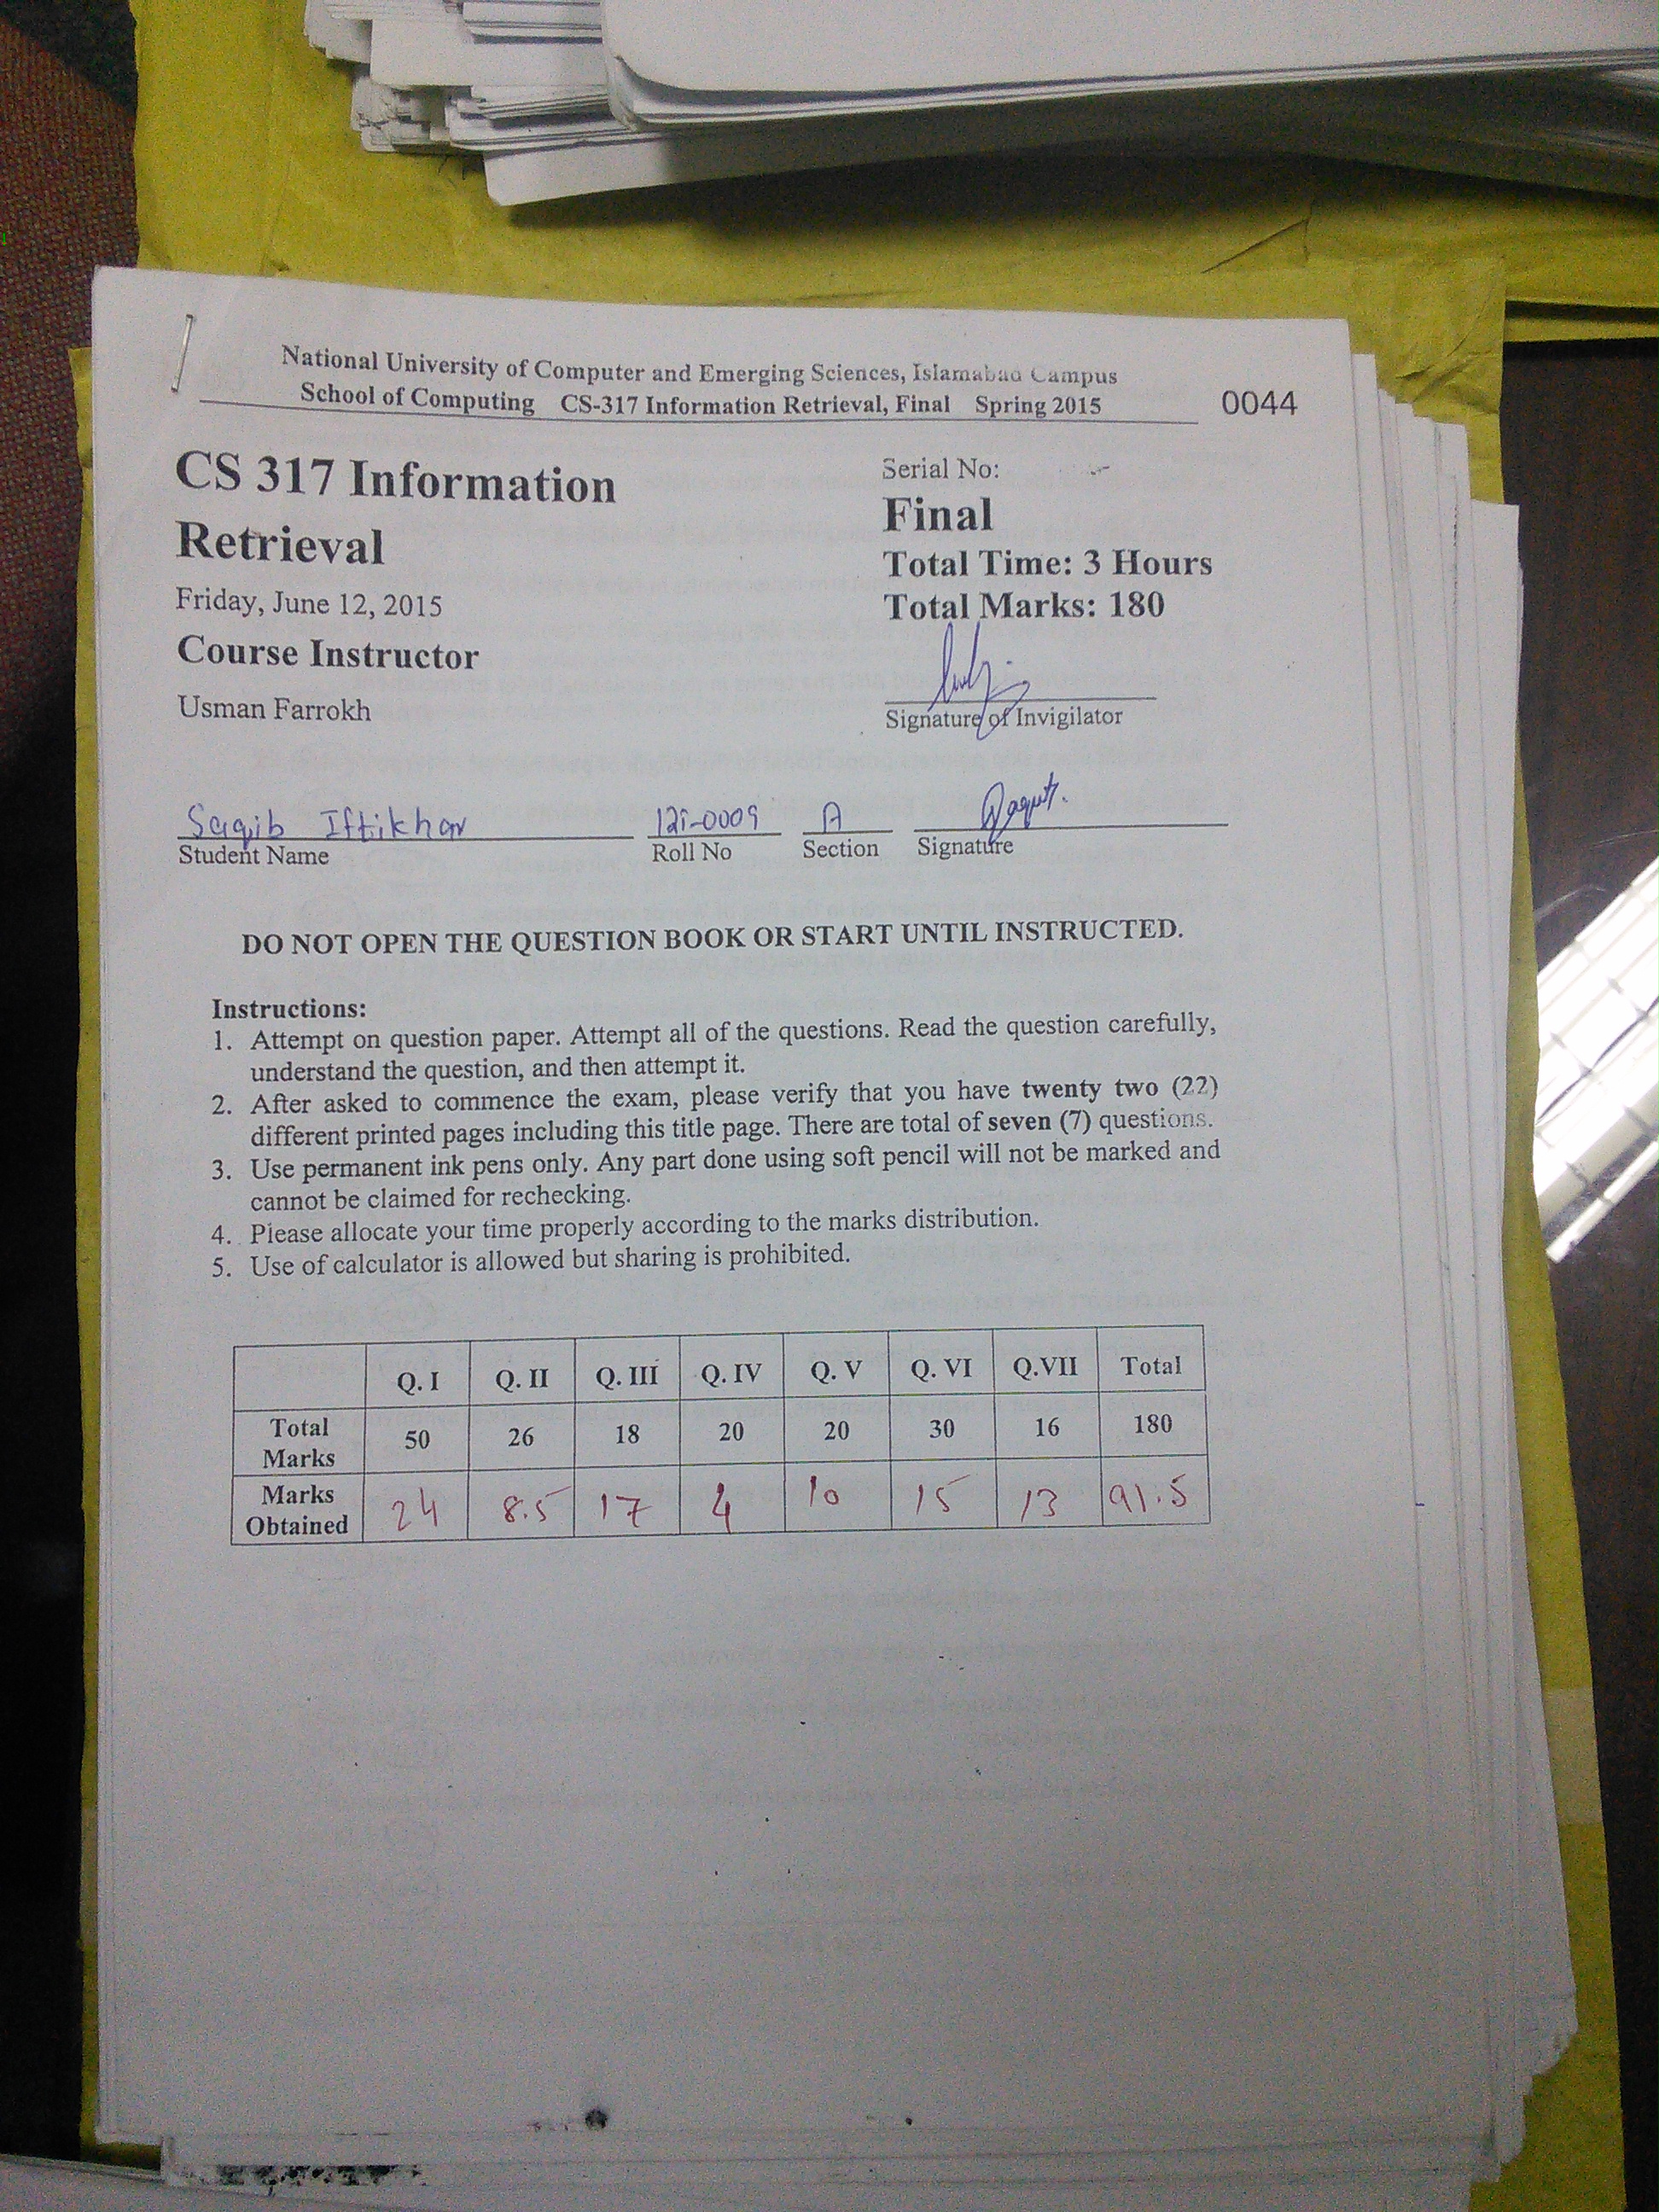 National University of Computer and Emerging Sciences, Islamabad Campus
School of Computing CS-317 Information Retrieval, Final Spring 2015 0044
CS 317 Information
Retrieval
Friday, June 12, 2015
Course Instructor
Usman Farrokh
Serial No:
Final
Total Time: 3 Hours
Total Marks: 180
Signature of Invigilator
Saqib Iftikhar 12i-0009 A
Student Name Roll No Section Signature
DO NOT OPEN THE QUESTION BOOK OR START UNTIL INSTRUCTED.
Instructions:
1. Attempt on question paper. Attempt all of the questions. Read the question carefully,
understand the question, and then attempt it.
2. After asked to commence the exam, please verify that you have twenty two (22)
different printed pages including this title page. There are total of seven (7) questions.
3. Use permanent ink pens only. Any part done using soft pencil will not be marked and
cannot be claimed for rechecking.
4. Please allocate your time properly according to the marks distribution.
5. Use of calculator is allowed but sharing is prohibited.
Q. I Q. II Q. III Q. IV Q. V Q. VI Q.VII Total
Total Marks 50 26 18 20 20 30 16 180
Marks Obtained 24 8.5 17 4 10 15 13 91.5